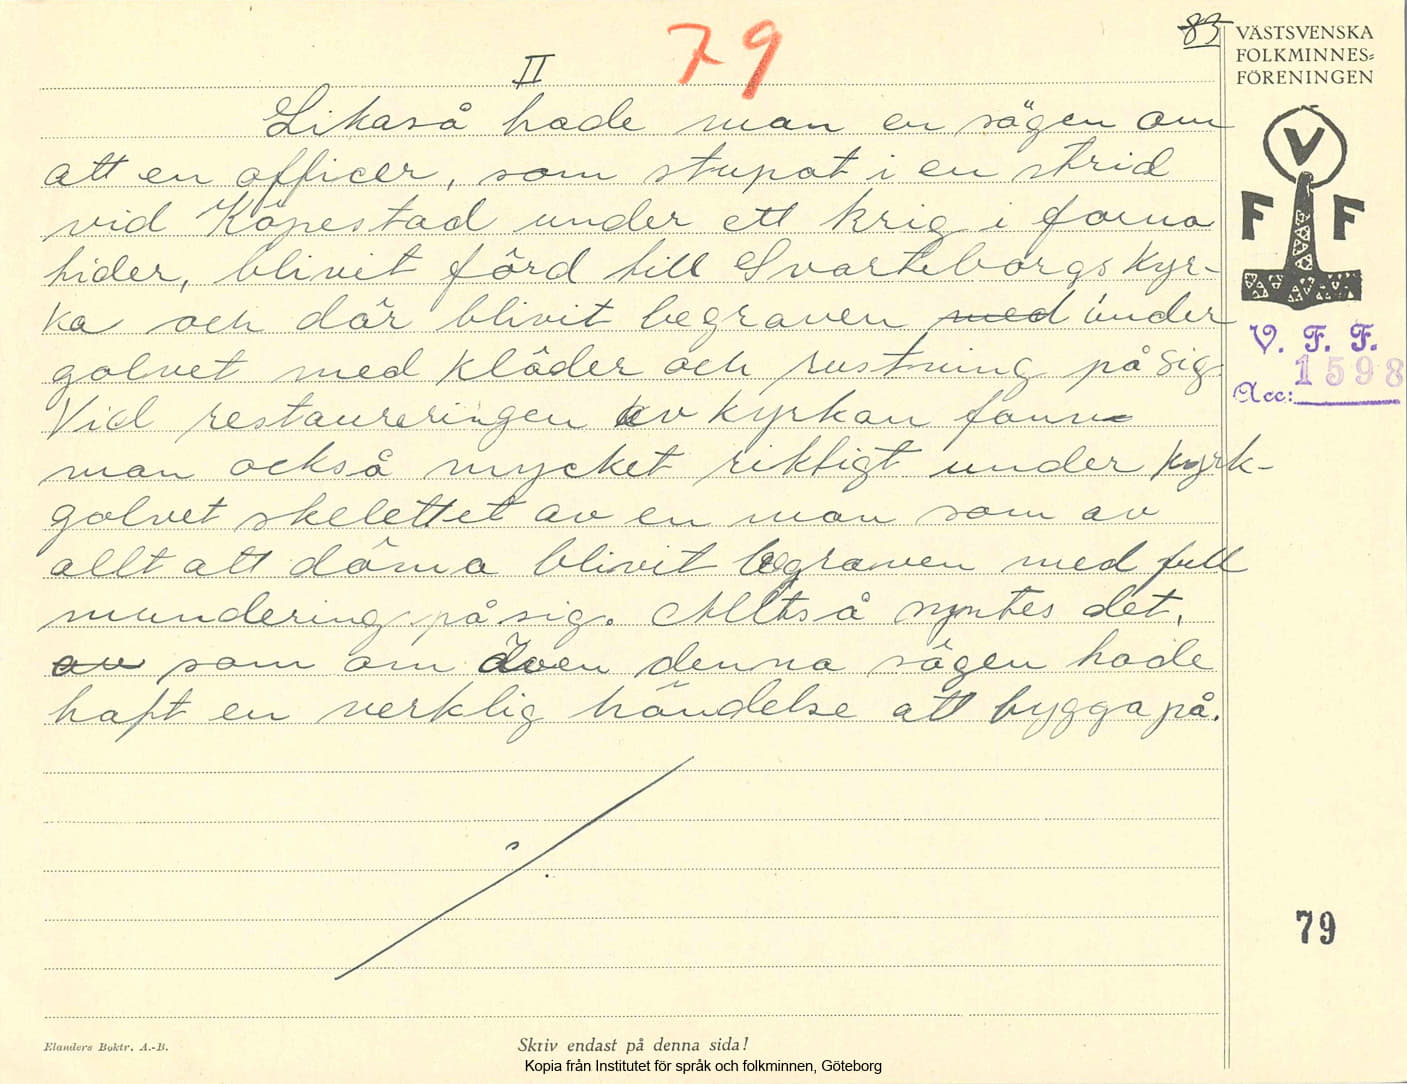 83
II
79
VÄSTSVENSKA
FOLKMINNES=
FÖRENINGEN
V
F F
V. F. F.
1598
Acc:
Likaså hade man en sägen om
att en officer, som stupat i en strid
vid Köpestad under ett krig i forna
tider, blivit förd till Svarteborgs kyr-
ka och där blivit begraven med under
golvet med kläder och rustning på sig.
Vid restaureringen av kyrkan fann
man också mycket riktigt under kyrk-
golvet skelettet av en man som av
allt att döma blivit begraven med full
mundering på sig. Alltså syntes det,
av som om även denna sägen hade
haft en verklig händelse att bygga på.
79
Elanders Boktr. A.-B.
Skriv endast på denna sida!
Kopia från Institutet för språk och folkminnen, Göteborg